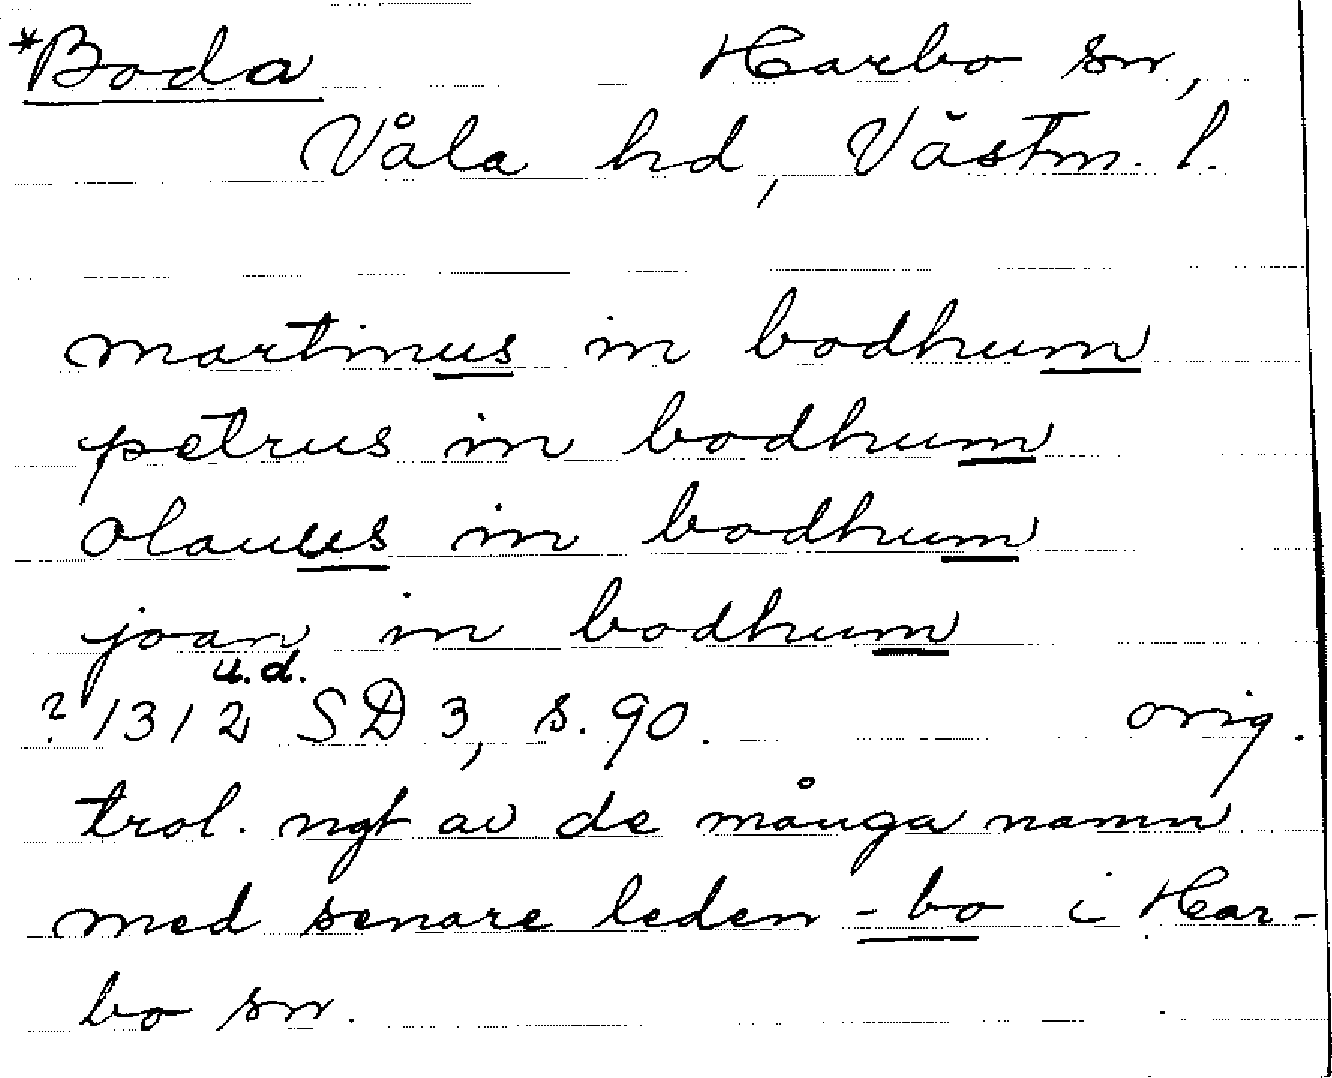 *Boda Harbo sn,
Våla hd, Västm. l.
martinus in bodhum
petrus in bodhum
olauus in bodhum
joan in bodhum
u.d.
? 1312 SD 3, s. 90. orig.
trol. ngt av de många namn
med senare leden -bo i Har-
bo sn.